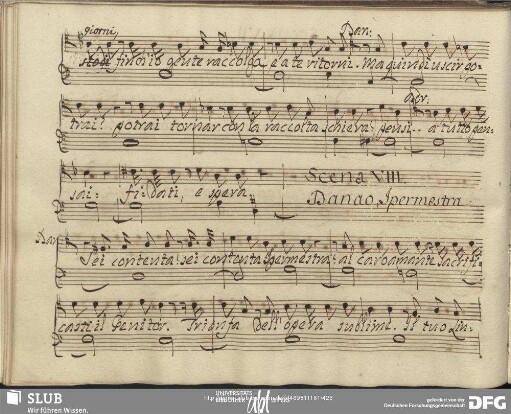 giorni,
Dan:
finch'io gente raccolga, e a te ritorni. Ma quindi uscir po-
Adr.
trai? potrai tornar con la raccolta schiera? pensi.. a tutto pen-
sai: fidati, e spera.
Scena VIII.
Danao Ipermestra
Dan
Sei contenta sei contenta Ipermestra: al caro amante Sacrifi-
casti il Genitor. Trionfa dell'opera sublime. Il tuo
SLUB
Wir führen Wissen.
UNIVERSITÄTS
gefördert von der
Deutschen Forschungsgemeinschaft
DFG